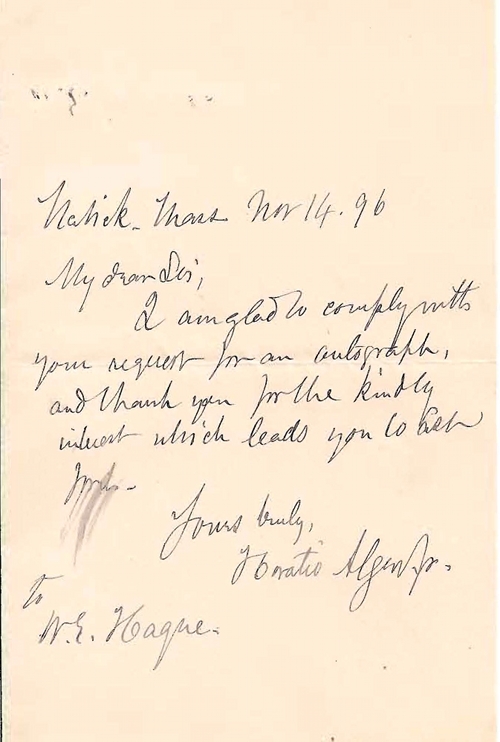 Natick. Mass Nov 14. 96
My dear Sir,
I am glad to comply with
your request for an autograph,
and thank you for the kindly
interest which leads you to ask
Yours truly,
Horatio Alger Jr.
To
W. E. Hague.